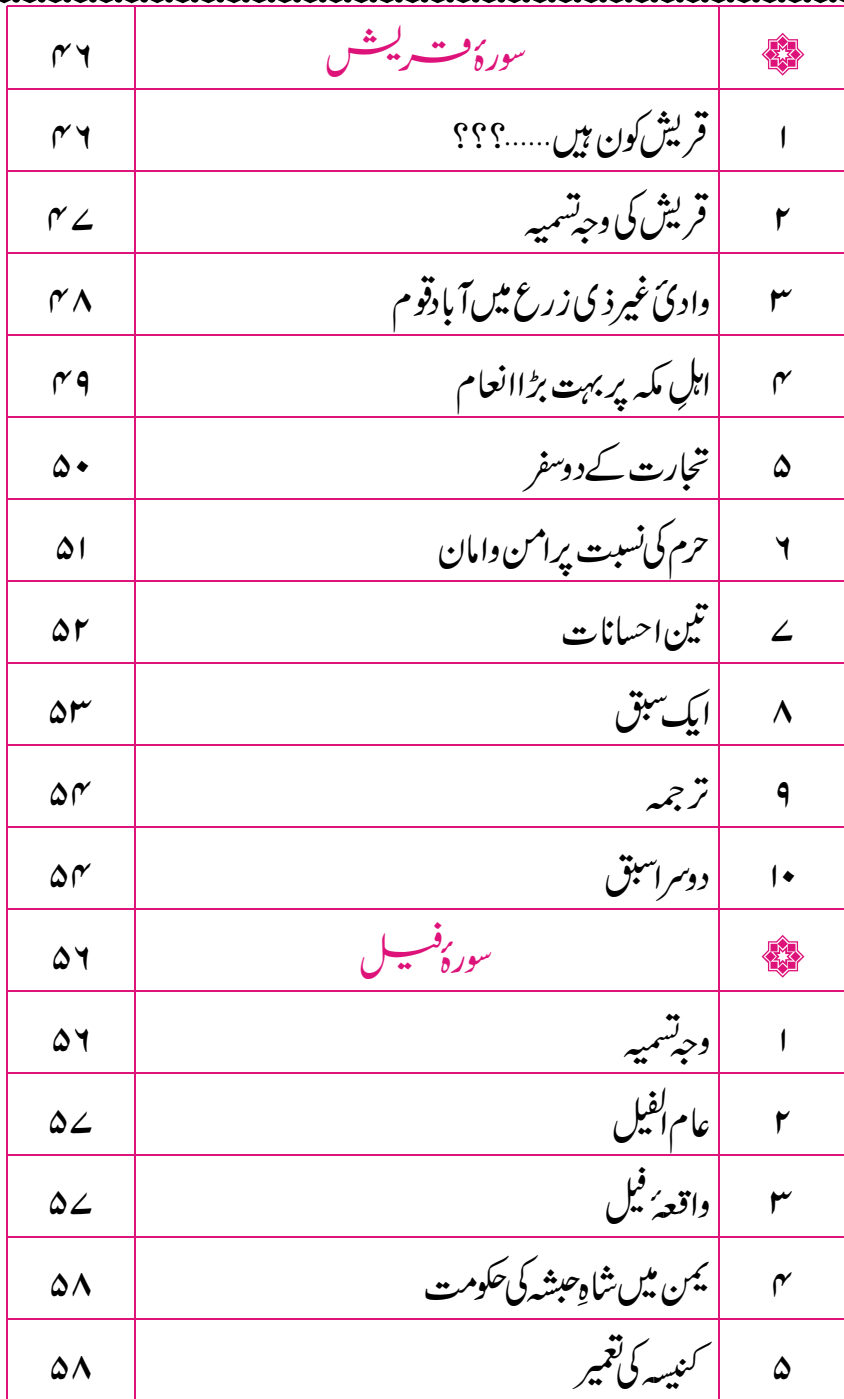 سورۂ قریش ۴۶
۱ قریش کون ہیں......؟؟؟ ۴۶
۲ قریش کی وجہ تسمیہ ۴۷
۳ وادیٔ غیر ذی زرع میں آباد قوم ۴۸
۴ اہلِ مکہ پر بہت بڑا انعام ۴۹
۵ تجارت کے دو سفر ۵۰
۶ حرم کی نسبت پر امن و امان ۵۱
۷ تین احسانات ۵۲
۸ ایک سبق ۵۳
۹ ترجمہ ۵۴
۱۰ دوسرا سبق ۵۴
سورۂ فیل ۵۶
۱ وجہ تسمیہ ۵۶
۲ عام الفیل ۵۷
۳ واقعۂ فیل ۵۷
۴ یمن میں شاہِ حبشہ کی حکومت ۵۸
۵ کنیسہ کی تعمیر ۵۸